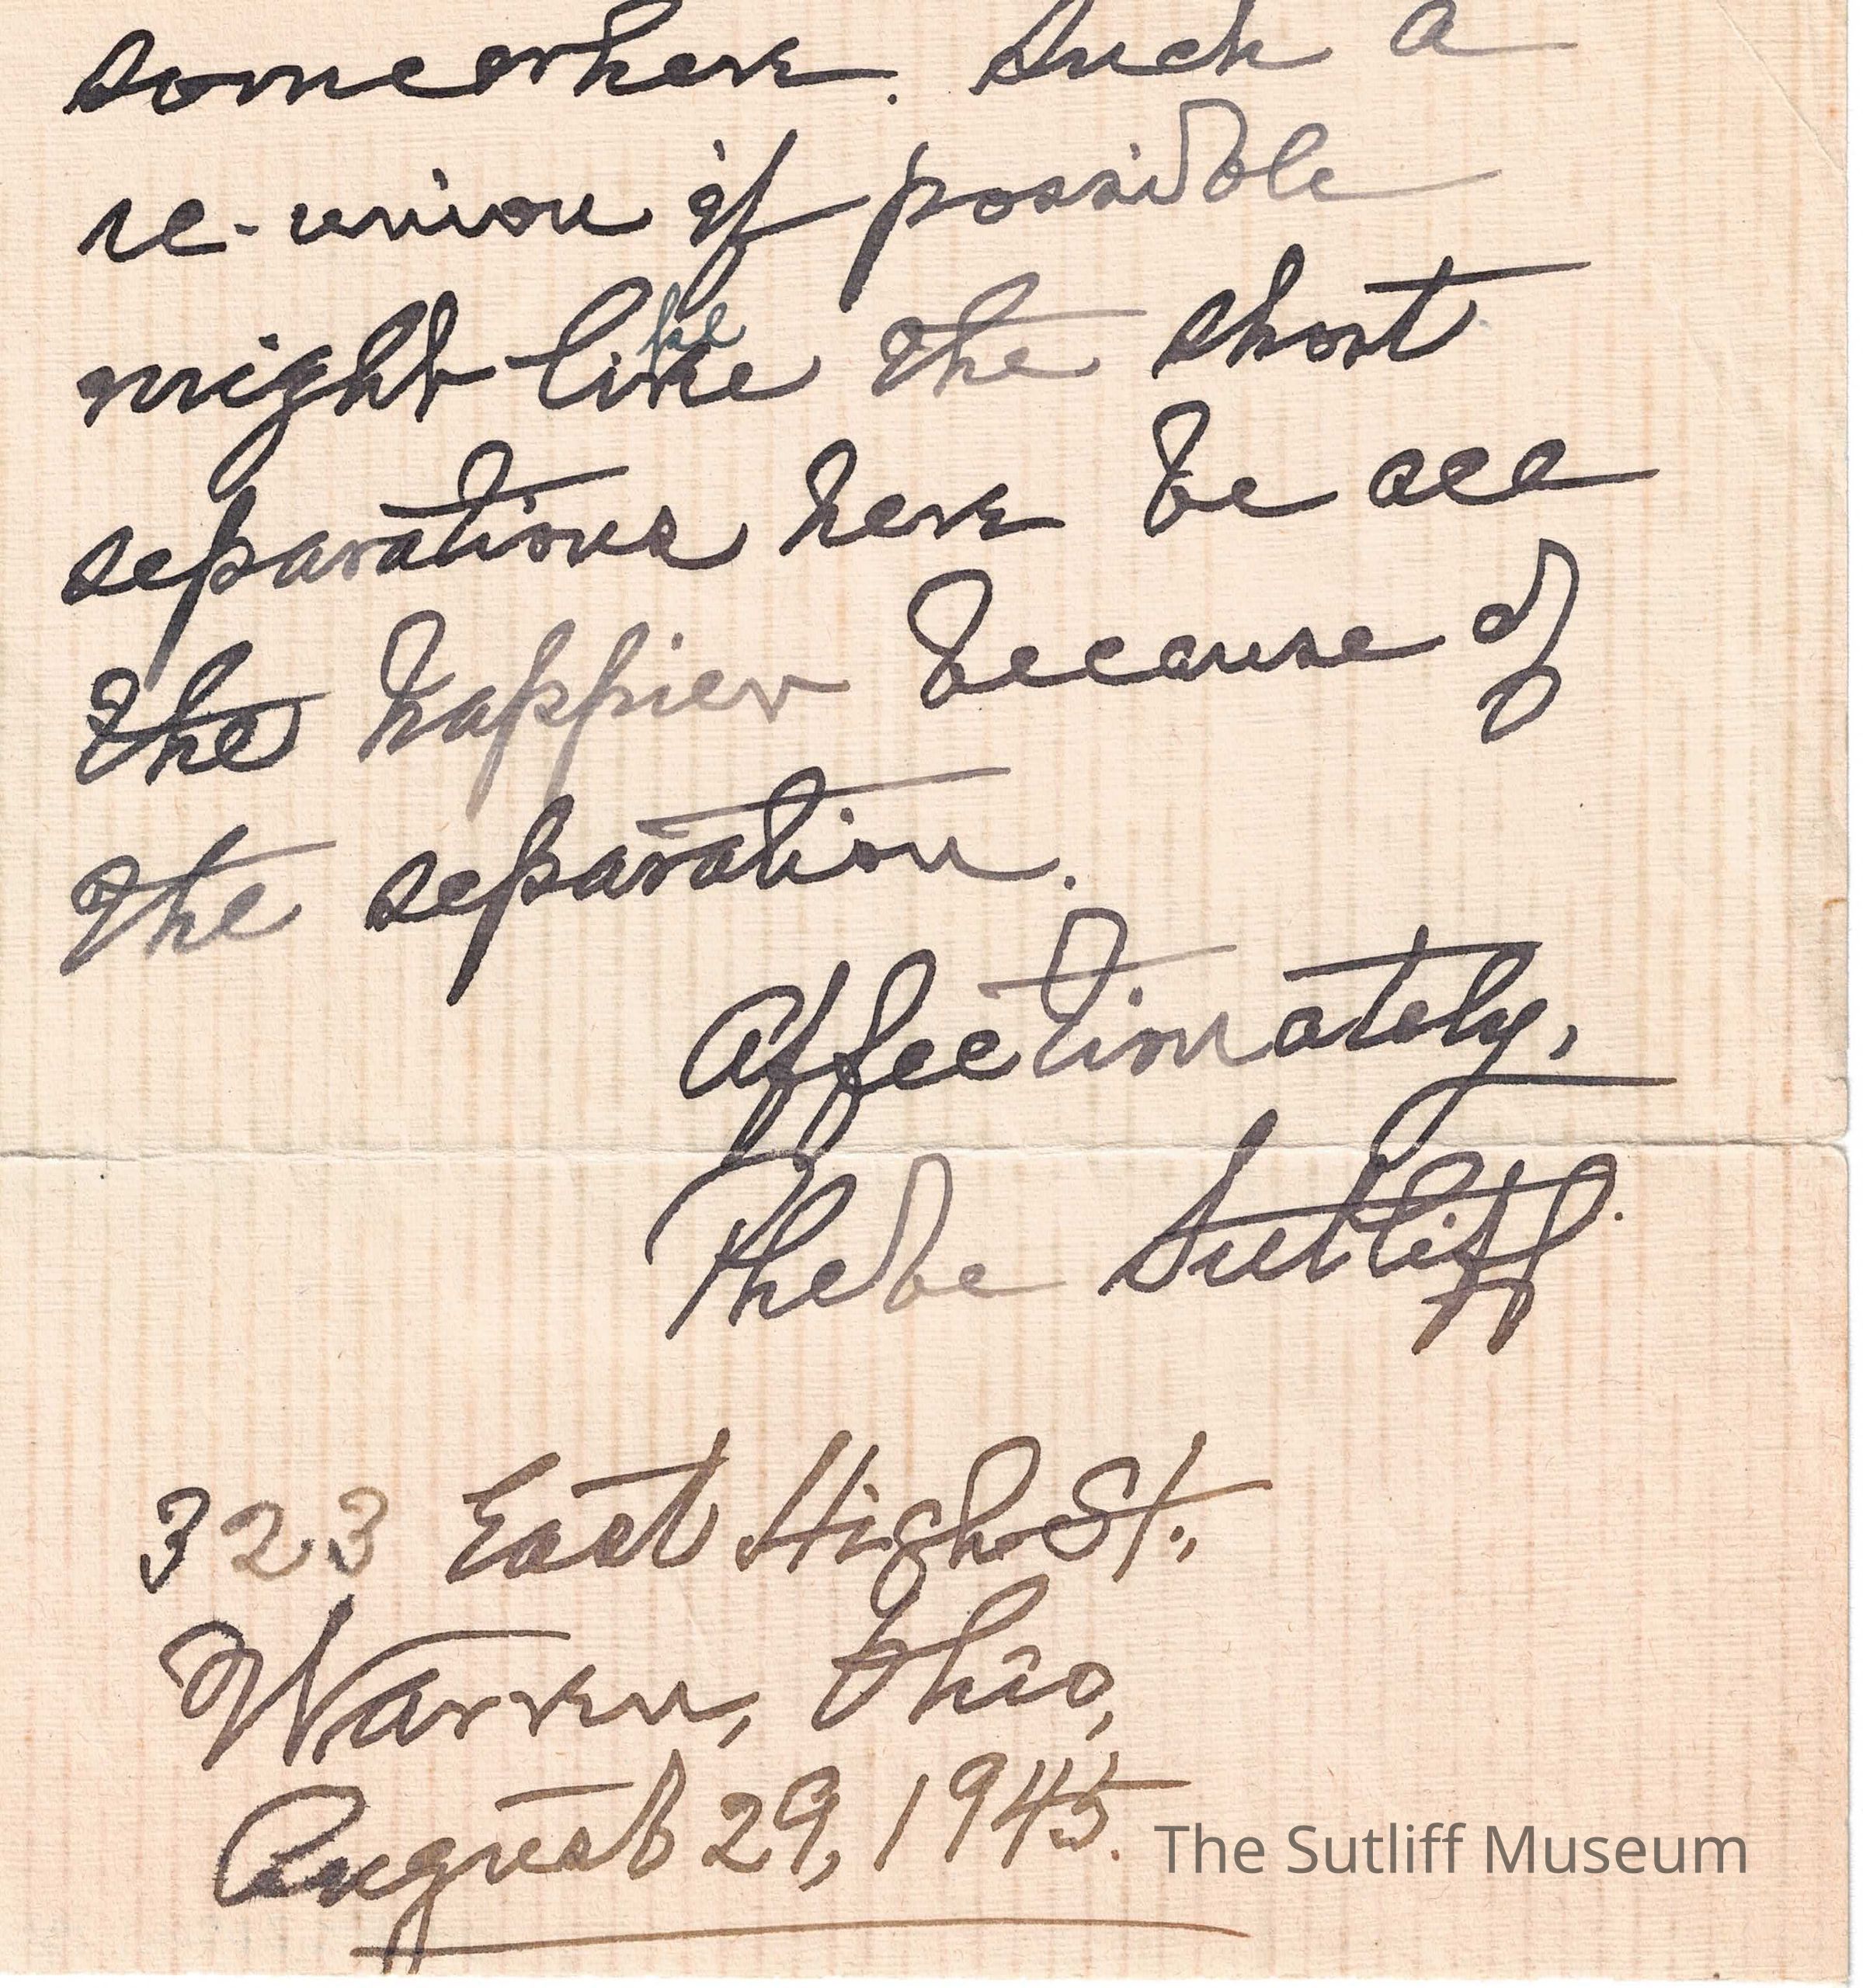 somewhere. Such a
re-union if possible
might like the short
ke
separations here be all
the happier because of
the separation.
Affectionately,
Phebe Sutliff.
323 East High St.,
Warren, Ohio,
August 29, 1945.
The Sutliff Museum